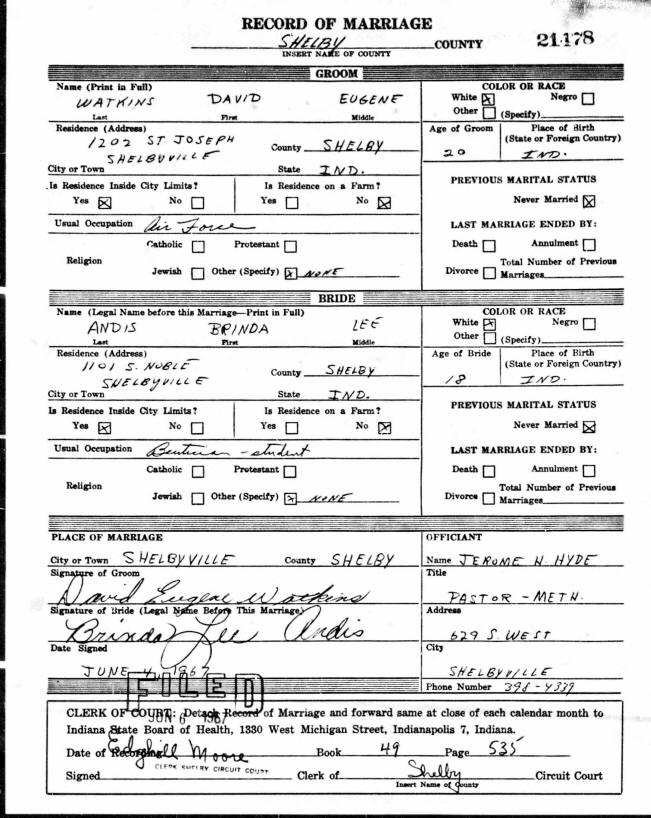 RECORD OF MARRIAGE
SHELBY COUNTY 21178
INSERT NAME OF COUNTY
GROOM
Name (Print in Full)
WATKINS DAVID EUGENE
Last First Middle
COLOR OR RACE
White [X] Negro [ ]
Other [ ] (Specify)
Residence (Address)
1202 ST JOSEPH
SHELBUVILLE
County SHELBY
City or Town
State IND.
Age of Groom
20
Place of Birth
(State or Foreign Country)
IND.
Is Residence Inside City Limits?
Yes [X] No [ ]
Is Residence on a Farm?
Yes [ ] No [X]
PREVIOUS MARITAL STATUS
Never Married [X]
Usual Occupation Air Force
LAST MARRIAGE ENDED BY:
Religion
Catholic [ ] Protestant [ ]
Jewish [ ] Other (Specify) [X] NONE
Death [ ] Annulment [ ]
Divorce [ ] Total Number of Previous
Marriages
BRIDE
Name (Legal Name before this Marriage—Print in Full)
ANDIS BRINDA LEE
Last First Middle
COLOR OR RACE
White [X] Negro [ ]
Other [ ] (Specify)
Residence (Address)
1101 S. NOBLE
SHELBYVILLE
County SHELBY
City or Town
State IND.
Age of Bride
18
Place of Birth
(State or Foreign Country)
IND.
Is Residence Inside City Limits?
Yes [X] No [ ]
Is Residence on a Farm?
Yes [ ] No [X]
PREVIOUS MARITAL STATUS
Never Married [X]
Usual Occupation - student
LAST MARRIAGE ENDED BY:
Religion
Catholic [ ] Protestant [ ]
Jewish [ ] Other (Specify) [X] NONE
Death [ ] Annulment [ ]
Divorce [ ] Total Number of Previous
Marriages
PLACE OF MARRIAGE
City or Town SHELBYVILLE County SHELBY
Signature of Groom
David Eugene Watkins
Signature of Bride (Legal Name Before This Marriage)
Brinda Lee Andis
Date Signed
JUNE 4, 1967
OFFICIANT
Name JEROME N. HYDE
Title
PASTOR - METH.
Address
629 S. WEST
City
SHELBYVILLE
Phone Number 398-4339
FILED
JUN 6 1967
CLERK OF COURT: Detach Record of Marriage and forward same at close of each calendar month to
Indiana State Board of Health, 1330 West Michigan Street, Indianapolis 7, Indiana.
Date of Recording Book 49 Page 535
Edghill Moore
CLERK SHELBY CIRCUIT COURT
Signed Clerk of Shelby Circuit Court
Insert Name of County